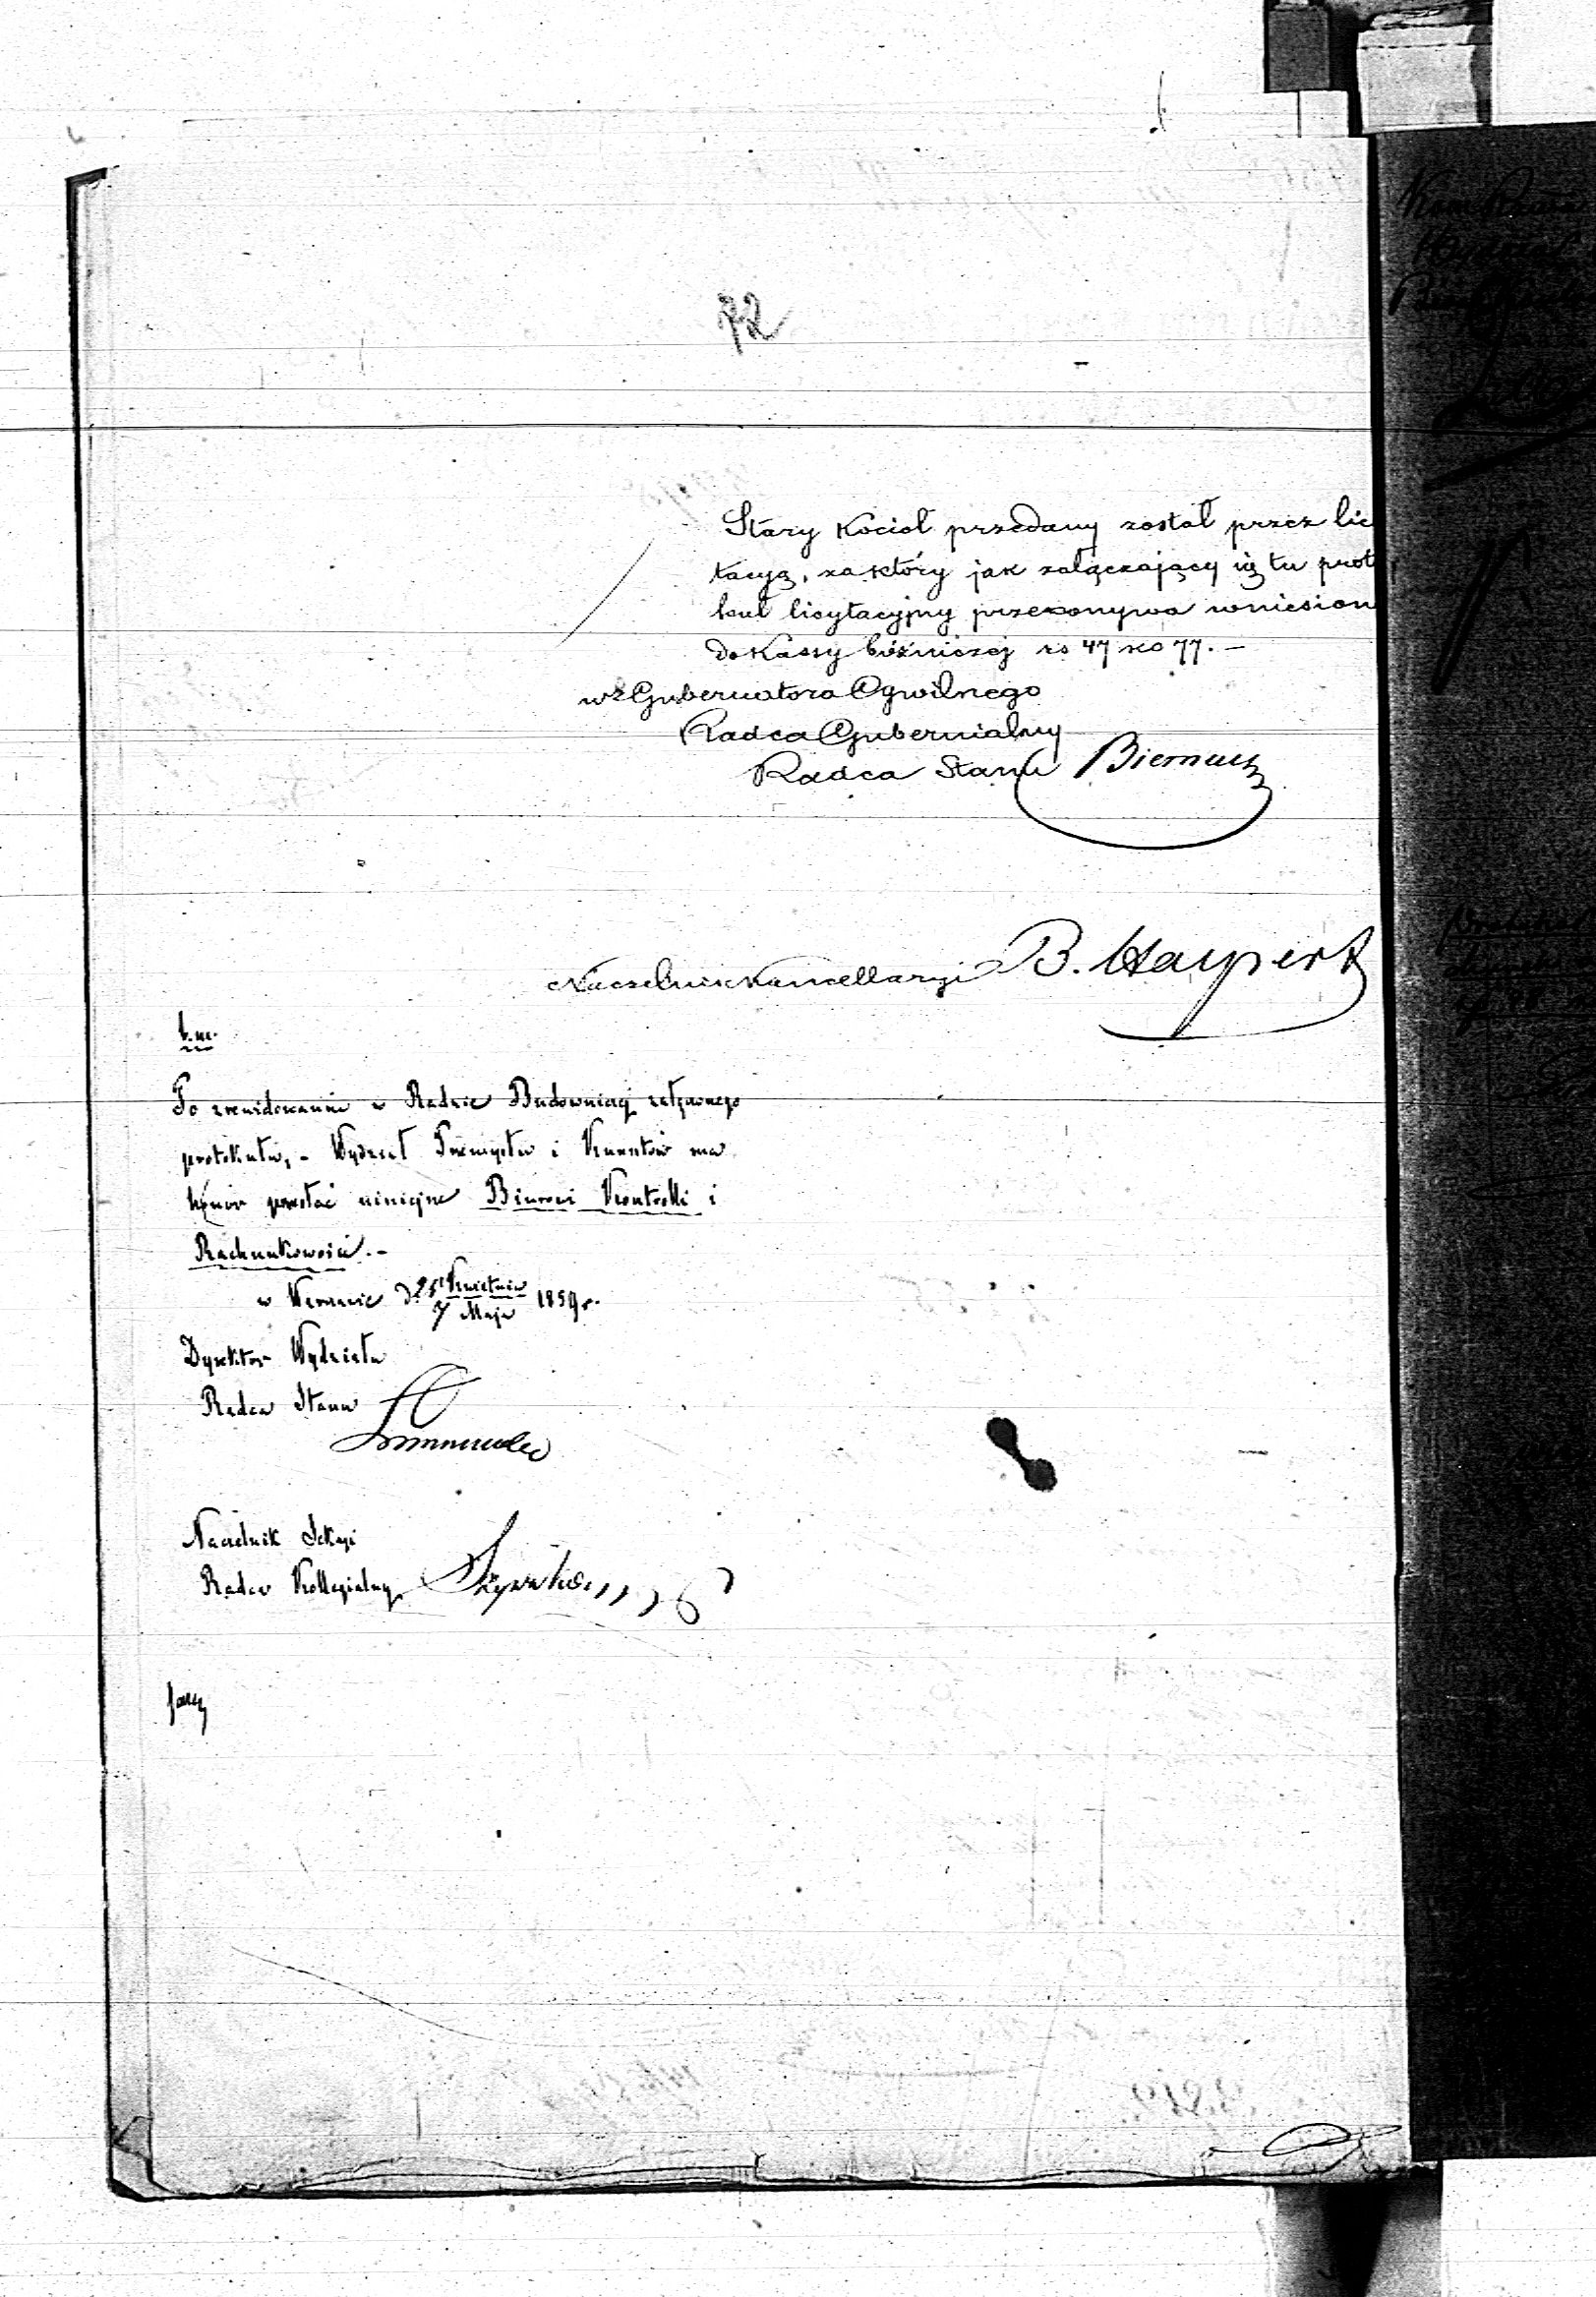 72
Stary Kocioł przedany został przez lic
tacyą, za który jak załączający się tu prot
kuł licytacyjny przekonywa wniesion
do Kassy bóżniczej rs 47 ko 77. —
wz Gubernatora Cywilnego
Radca Gubernialny
Radca Stanu Biernacki
Naczelnik Kancellaryi B. Haypert
b. m.
Po zrewidowaniu w Radzie Budowniczej załączonego
protokułu, - Wydział Przemysłu i Kunsztów ma
honor przesłać niniejsze Biurowi Kontrolli i
Rachunkowości. -
w Warszawie d. 25 Kwietnia / 7 Maja 1859 r.
Dyrektor Wydziału
Radca Stanu
Naczelnik Sekcyi
Radca Kollegialny